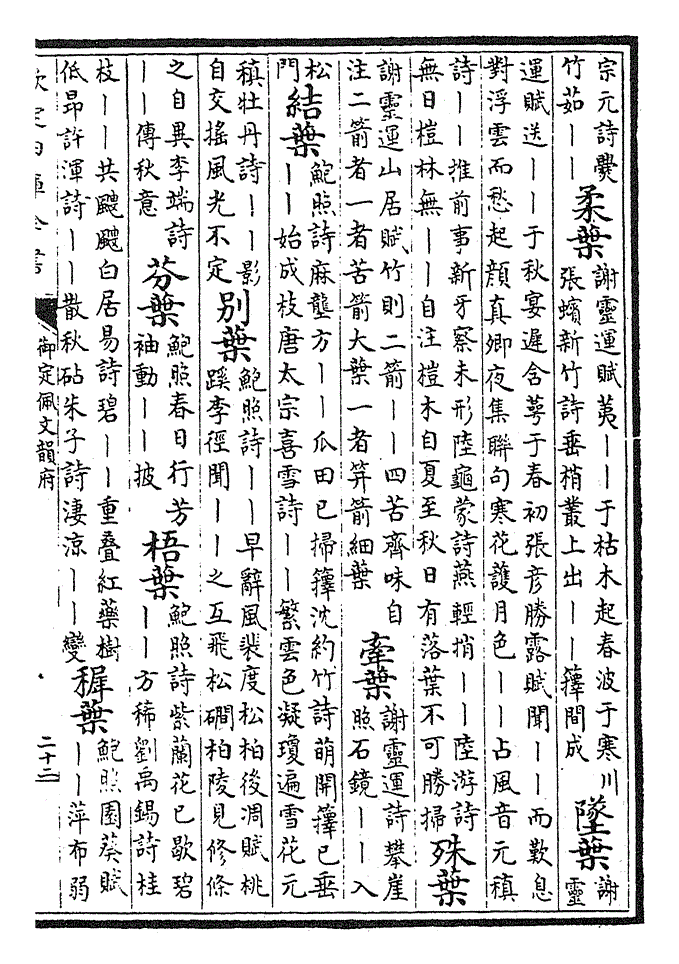 宗元詩爨
竹茹丨丨
柔葉
謝靈運賦荑丨丨于枯木起春波于寒川
張蠙新竹詩垂梢叢上出丨丨籜間成
墜葉
謝
靈
運賦送丨丨于秋宴遲含萼于春初張彥勝露賦聞丨丨而歎息
對浮雲而愁起顏真卿夜集聯句寒花護月色丨丨占風音元稹
詩丨丨推前事新牙察未形陸龜蒙詩燕輕捎丨丨陸游詩
無日榿林無丨丨自注榿木自夏至秋日有落葉不可勝掃
殊葉
謝靈運山居賦竹則二箭丨丨四苦齊味自
注二箭者一者苦箭大葉一者笄箭細葉
牽葉
謝靈運詩攀崖
照石鏡丨丨入
松
門
結葉
鮑照詩麻壟方丨丨瓜田已掃籜沈約竹詩萌開籜已垂
丨丨始成枝唐太宗喜雪詩丨丨繁雲色凝瓊遍雪花元
稹牡丹詩丨丨影
自交搖風光不定
別葉
鮑照詩丨丨早辭風裴度松柏後凋賦桃
蹊李徑聞丨丨之互飛松磵柏陵見修條
之自異李端詩
丨丨傳秋意
芬葉
鮑照春日行芳
袖動丨丨披
梧葉
鮑照詩紫蘭花已歇碧
丨丨方稀劉禹錫詩桂
枝丨丨共颼飀白居易詩碧丨丨重疊紅藥樹
低昂許渾詩丨丨散秋砧朱子詩淒涼丨丨變
稺葉
鮑照園葵賦
丨丨萍布弱
欽定四庫全書
御定佩文韻府
二十二